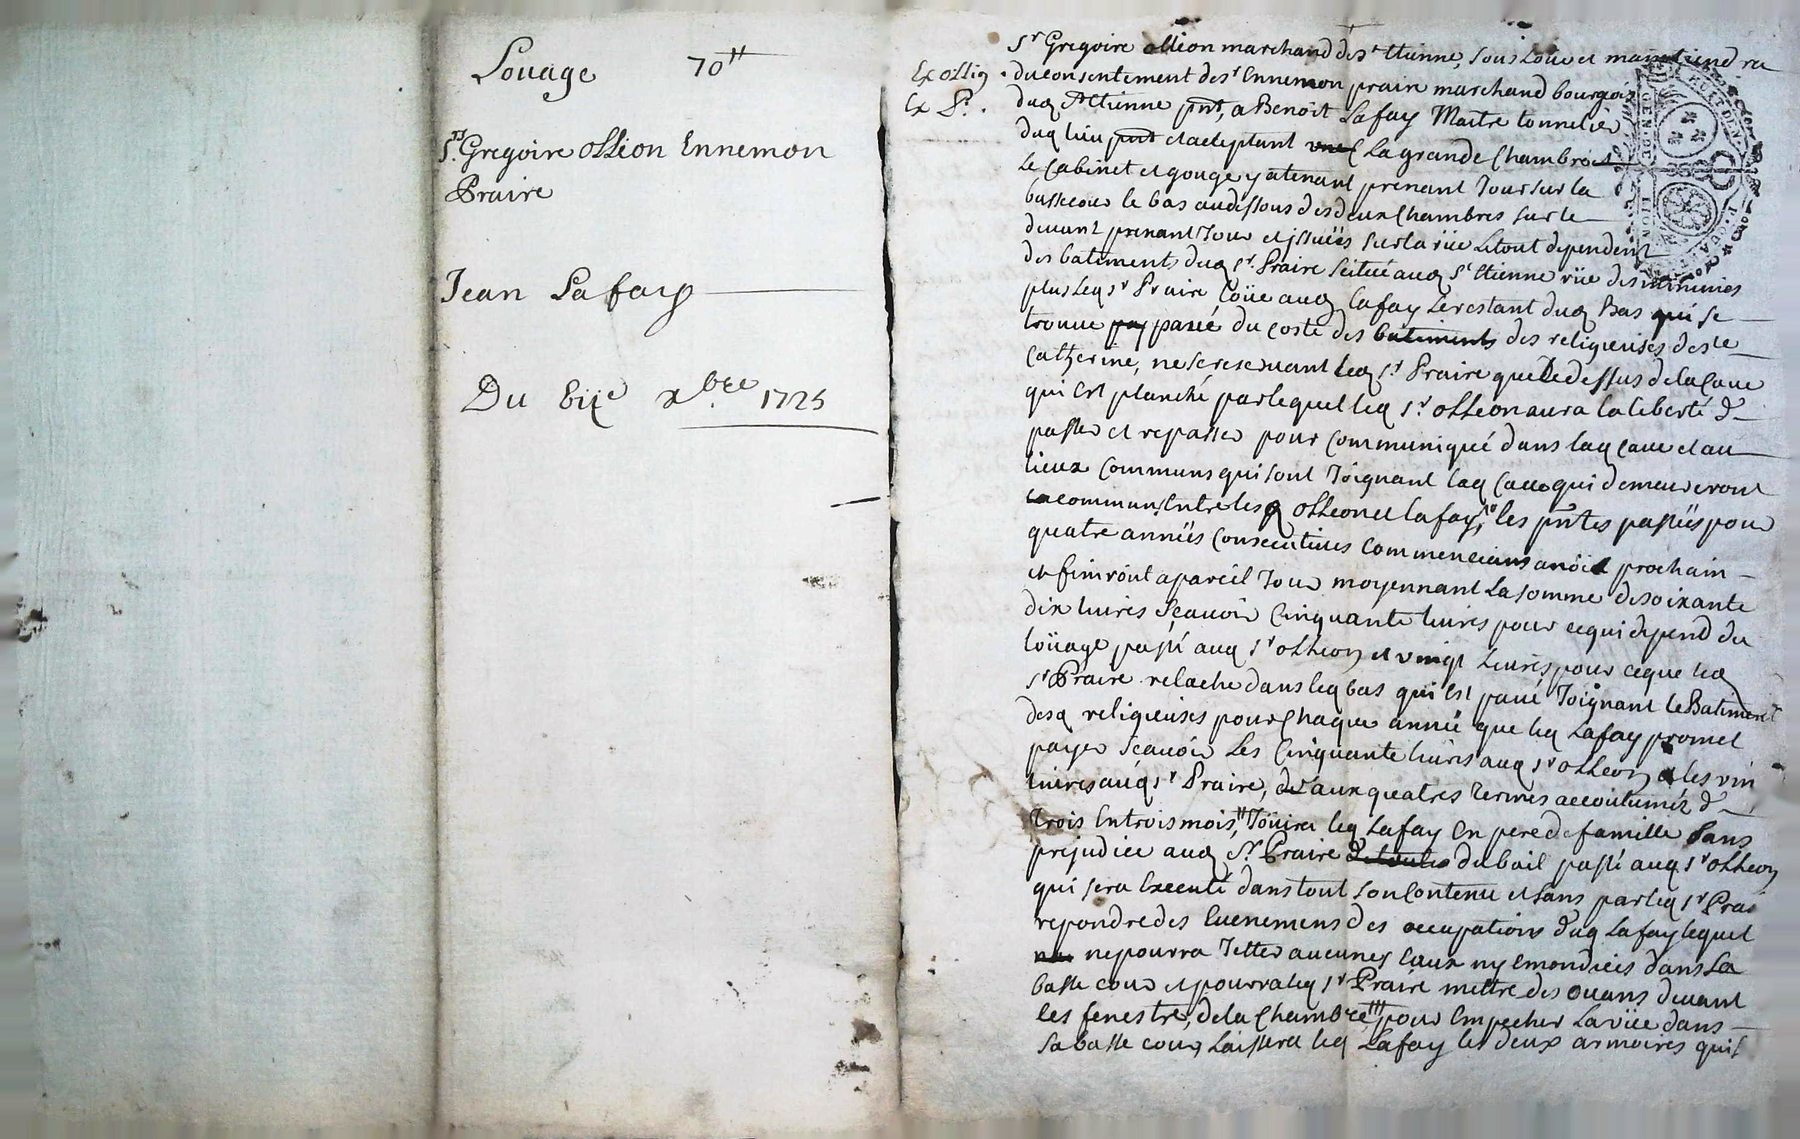 Louage 70ᵗᵗ
Sʳˢ. Gregoire ollion Ennemon
Praire
Jean Lafay
Du xbre 1725
Ex ollion
Ex Pʳ.
Sʳ Gregoire ollion marchand de Sᵗ Etienne, sous Loue et maintiendra
du consentement de sʳ Ennemon prair marchand bourgois
duq Sᵗ Etienne pnt, a Benoit Lafay Maitre tonnelier
duq lieu pnt et acleptant une La grande Chambre et
Le Cabinet et gouge y atenant prenant Jour sur la
bassecour le bas audessous des deux Chambres sur le
devant prenant Jour et issuës sur la rüe Le tout dependent
des batiments duq sʳ. Praire scitué auq Sᵗ Etienne rüe des minimes
plus Leq sʳ Praire Loüe auq Lafay Le restant duq Bas qui se
trouue pavé du costé des batiments des religieuses de Sᵗᵉ
Catherine, ne se reseruant leq sʳ. Praire que le dessus de la Caue
qui est planché par lequel leq sʳ. ollion aura la liberté de
passer et repasser pour communiqué dans laq caue et au
lieux communs qui sont Joignant laq Caue qui demeureront
communs Entre lesq ollion et Lafay, les pntes passées pour
quatre annëes Consecutiues commencians a nöel prochain
et finiront apareil Jour moyennant La somme de soixante
dix liures Scauoir Cinquante liures pour ce qui depend du
Loüage passé auq sʳ ollion et vingt Liures pour ce que leq
sʳ Praire relache dans leq bas qui est paué Joignant le Batiment
desq religieuses pour Chaque année que leq Lafay promet
payer Scauoir Les Cinquante liures auq sʳ ollion et les vin
liures auq sʳ Praire, aux quatres termes accoutumez de
trois En trois mois, Joüira leq Lafay en pere de famille Sans
prejudice auq Sʳ. Praire du bail passé auq sʳ ollion
qui sera Executé dans tout son Contenu et sans par leq sʳ Prai
repondre des Euenemens des occupations duq Lafay lequel
ne pourra Jetter aucunes Eaux ny Emondices dans La
basse cour et pourra leq sʳ Praire mettre des ouans deuant
les fenestre, de la Chambre pour Empecher La vüe dans
sa basse cour Laissera leq Lafay les deux armoires qui